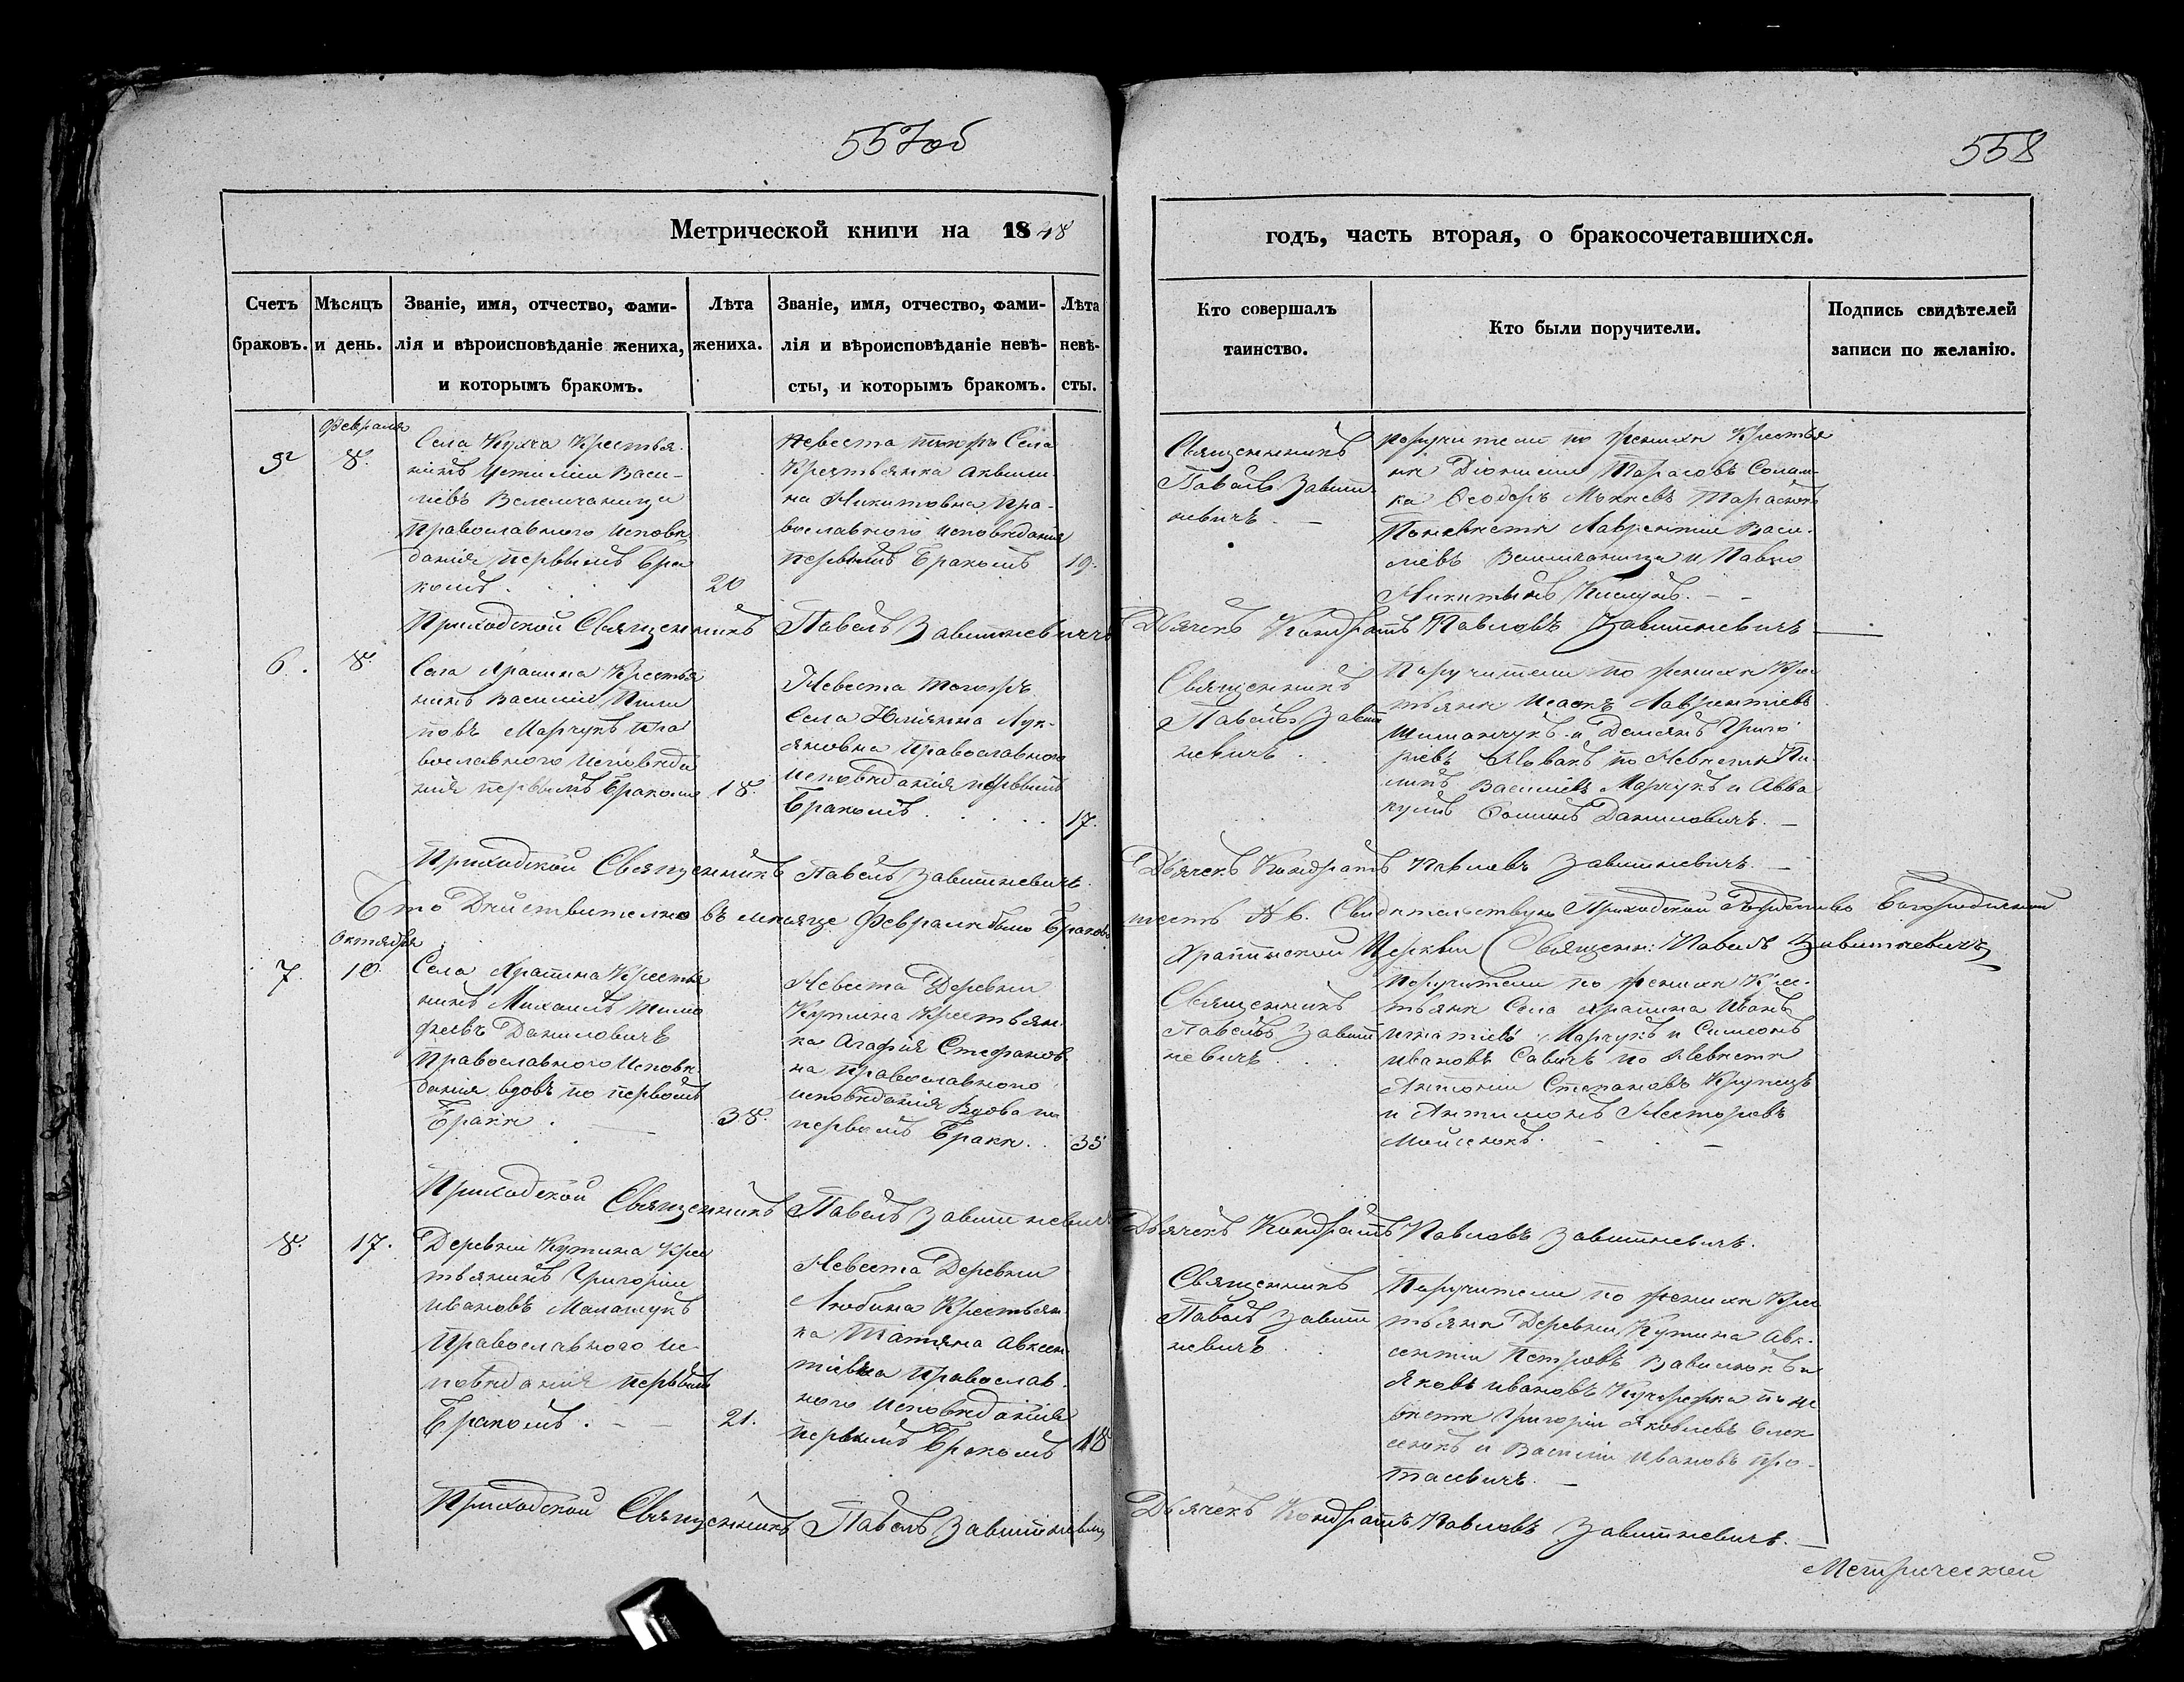 557об
558
Метрической книги на 1848
годъ, часть вторая, о бракосочетавшихся.
Счетъ браковъ.
Мѣсяцъ и день.
Званіе, имя, отчество, фами-
лія и вѣроисповѣданіе жениха,
и которымъ бракомъ.
Лѣта
жениха.
Званіе, имя, отчество, фами-
лія и вѣроисповѣданіе невѣ-
сты, и которымъ бракомъ.
Лѣта
невѣ-
сты.
Кто совершалъ
таинство.
Кто были поручители.
Подпись свидѣтелей
записи по желанію.
Февраля
5
8.
Села Кухча Крестья
нинъ Устиміи Васи-
ліевъ Велемчаница
Православного Исповѣ
данія первымъ бра
комъ
20
Невеста Села
Крестьянка Акили
на Никитовна Пра-
вославного исповѣданія
первымъ бракомъ
19.
Священникъ
Павелъ Завит
невичъ.
поручители по женихѣ Крестья
не Діонисіи Тарасовъ
Ѳеодоръ
По невестѣ Лаврентіи Васи-
ліевъ Велемчаница и Павло
Никитинъ
Приходской Священникъ Павелъ Завитневичъ
Дьячекъ Кондратъ Павловъ Завитневичъ
6.
8.
Села Храпина Крестья
нинъ Василіи Пили
повъ Марчукъ Пра
вославного Исповѣда
нія первымъ бракомъ
18.
Невеста тогожъ
Села Юліянна Лук-
яновна Православного
Исповѣданія первымъ
бракомъ
17.
Священникъ
Павелъ Завит
невичъ
Поручители по женихѣ Крес
тьяне Исаакъ Лаврентіевъ
Шиманчукъ и Демянъ Григо
ріевъ по Невестѣ Пи
липъ Василіевъ Марчукъ и Авва
кумъ Ѳоминъ Даниловичъ.
Приходской Священникъ Павелъ Завитневичъ.
Дьячекъ Кондратъ Павловъ Завитневичъ.
Что Дѣйствително въ мѣсяце Февралѣ было браковъ
шесть № 6. Свидѣтельствую Приходской Рождество Богородичной
Храпинской Церкви Священн: Павелъ Завитневичъ
Октября
7.
10.
Села Храпина Крестья
нинъ Михаилъ Тимо
феевъ Даниловичъ
Православного Исповѣ
данія вдовъ по первомъ
бракѣ.
38.
Невеста Деревни
Кутина Крестьян
ка Агафія Стефанов
на Православного
исповѣданія Вдова по
первомъ бракѣ.
35
Священникъ
Павелъ Завит
невичъ
Поручители по женихѣ Крес-
тьяне Села Храпина Иванъ
Игнатіевъ Марчукъ и Симеонъ
Ивановъ Савичъ по Невестѣ
Антоніи Степановъ Крупецъ
и Антимонъ Несторовъ
Мойсеюкъ.
Приходской Священникъ Павелъ Завитневичъ
Дьячекъ Кондратъ Павловъ Завитневичъ.
8.
17.
Деревни Кутина Крес
тьянинъ Григоріи
Ивановъ Малашукъ
Православного Ис-
повѣданія первымъ
бракомъ.
21.
Невеста Деревни
Любина Крестьян
ка Татяна Авксен
тіевна Православ
ного Исповѣданія
первымъ бракомъ
18
Священникъ
Павелъ Завит
невичъ
Поручители по женихѣ Крес
тьяне Деревни Кутина Авк-
сентіи Петровъ Вавилюкъ и
Яковъ Ивановъ по не
вестѣ Григоріи Яковлевъ Олек
сеюкъ и Василіи Ивановъ Про-
тасевичъ.
Приходской Священникъ Павелъ Завитневичъ
Дьячекъ Кондратъ Павловъ Завитневичъ.
Метрической